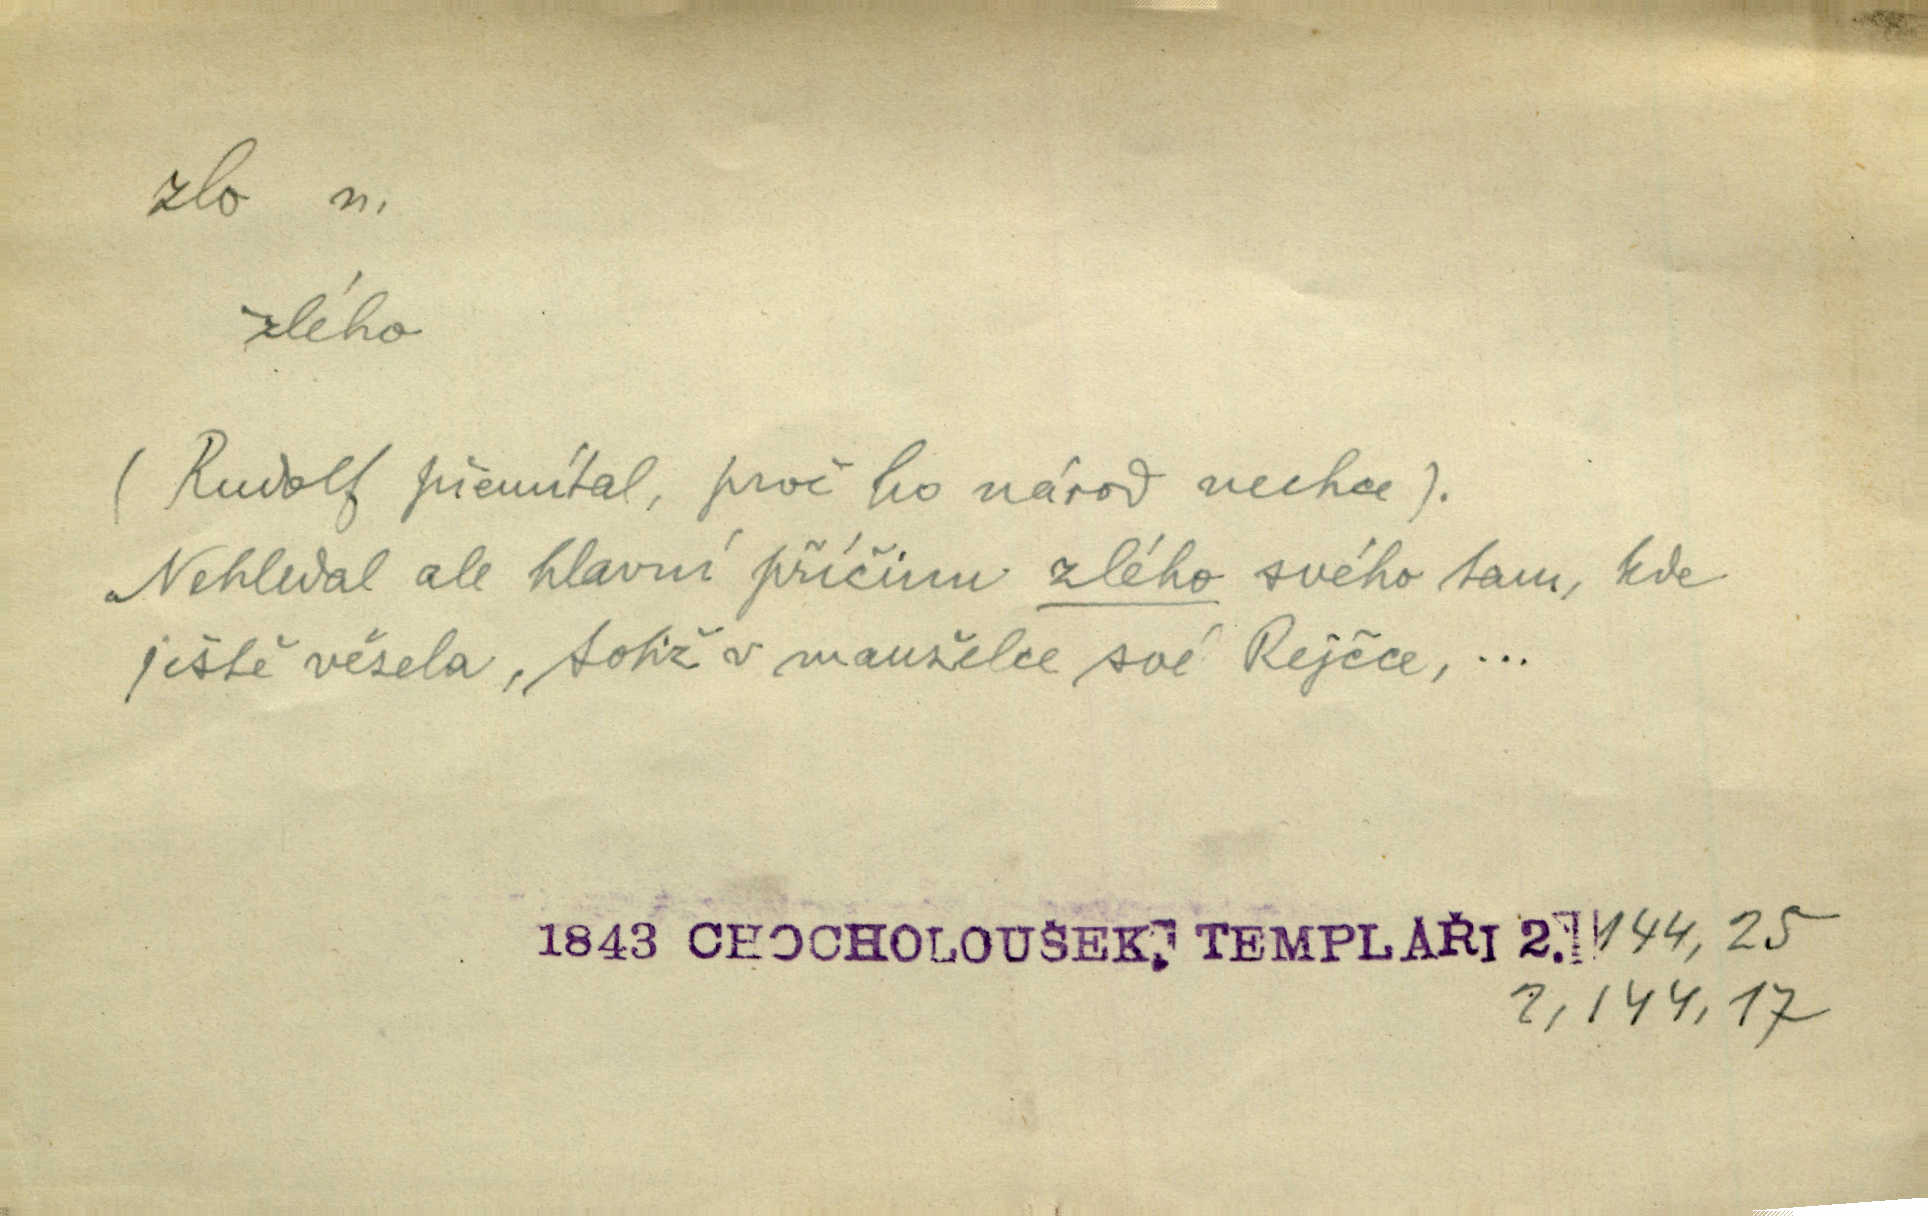 zlo n.
zlého
(Rudolf přemítal, proč ho národ nechce).
Nehledal ale hlavní příčinu zlého svého tam, kde
jistě věsela, totiž v manželce své Rejčce, ...
1843 CHOCHOLOUŠEK, TEMPLÁŘI 2. 144, 25
2, 144, 17